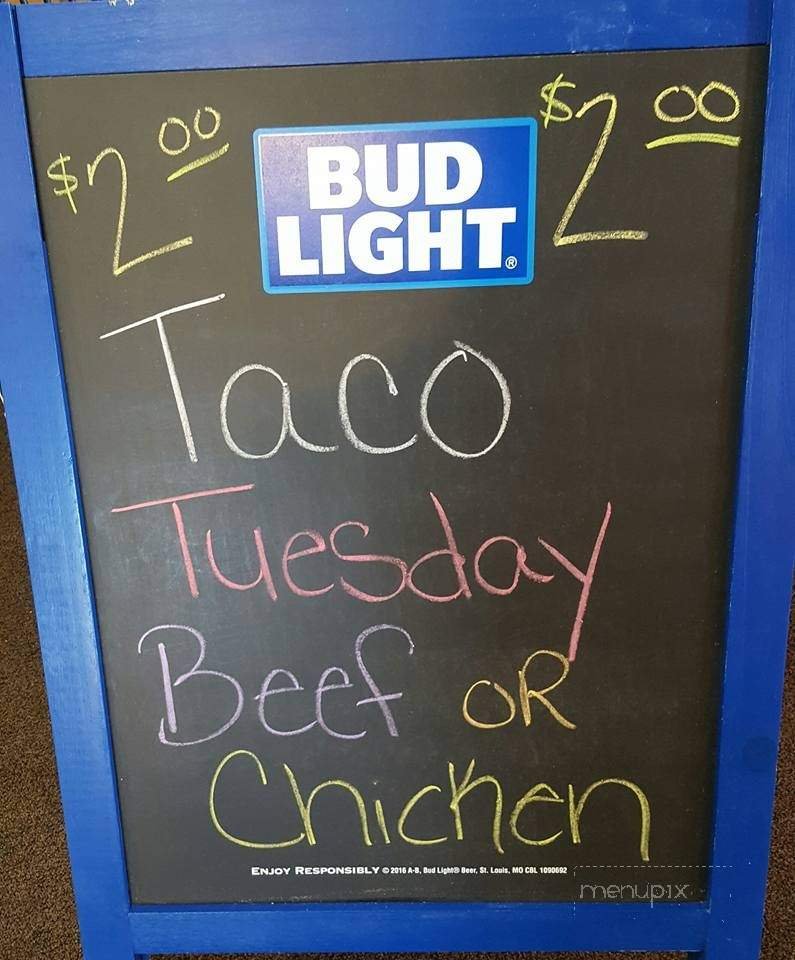 $2 00 $2 00
BUD
LIGHT®
Taco
Tuesday
Beef OR
Chicken
ENJOY RESPONSIBLY © 2016 A-B, Bud Light® Beer, St. Louis, MO CBL 1090692
menupix